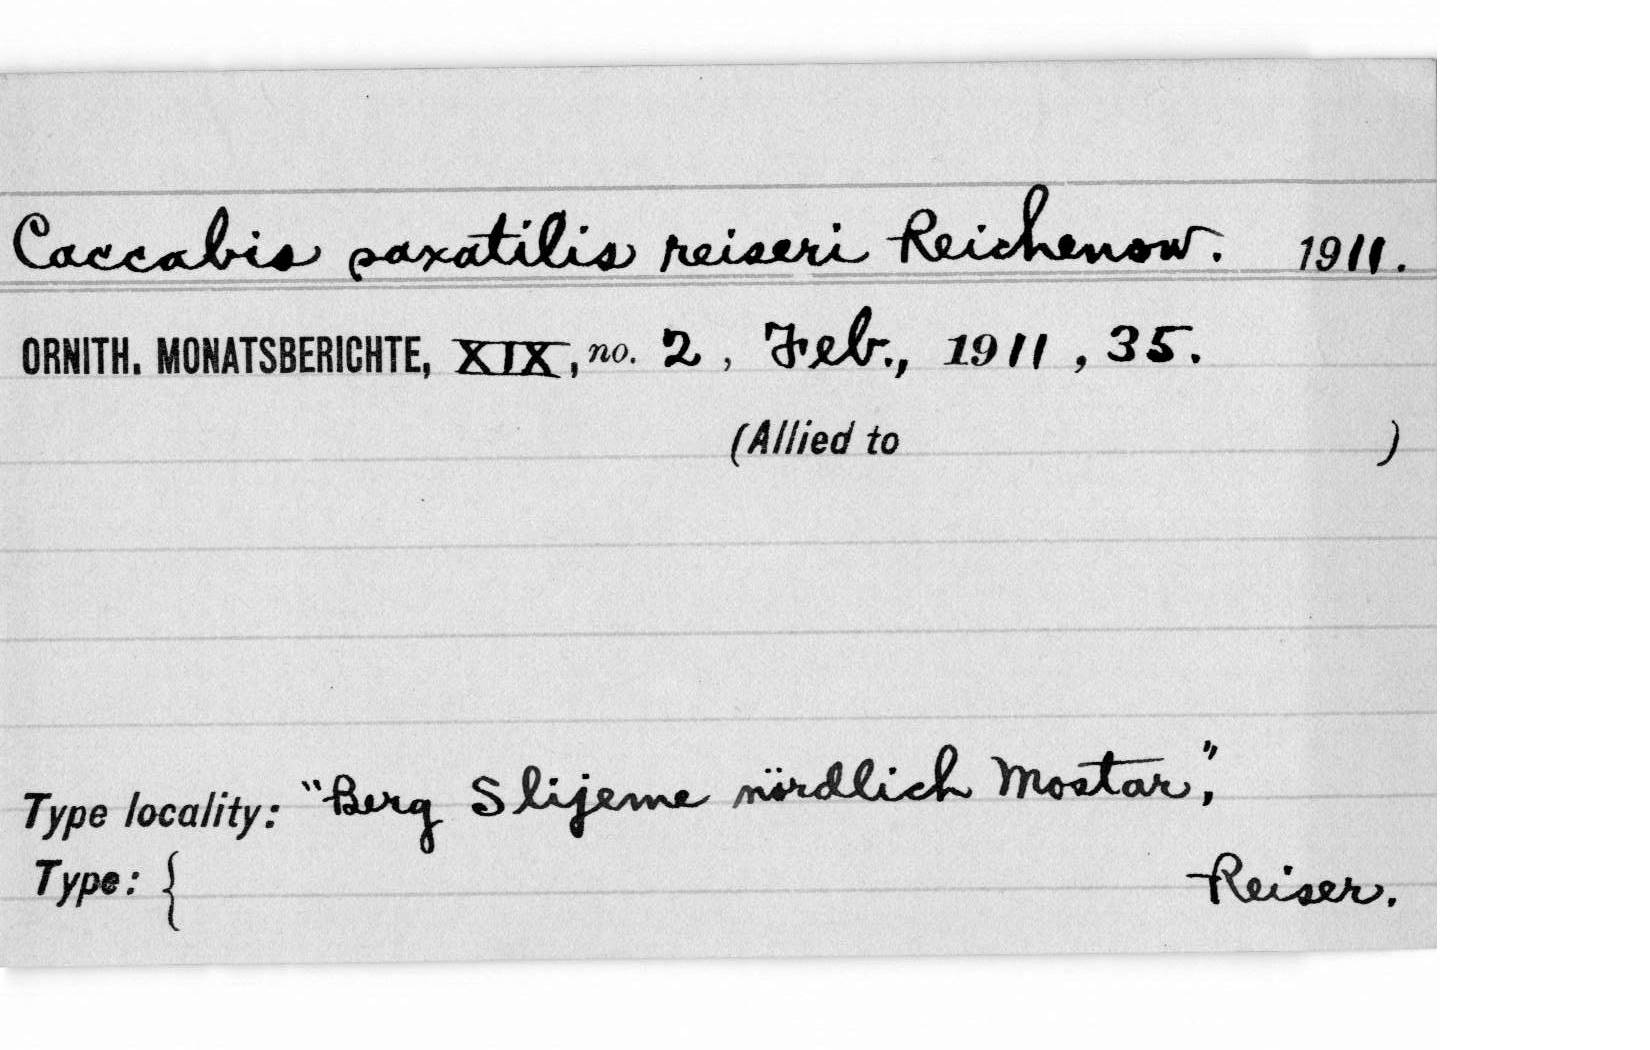 Caccabis saxatilis reiseri Reichenow. 1911.
ORNITH. MONATSBERICHTE, XIX, no. 2, Feb., 1911, 35.
(Allied to )
Type locality: "Berg Slijeme nördlich Mostar,"
Type: { Reiser.